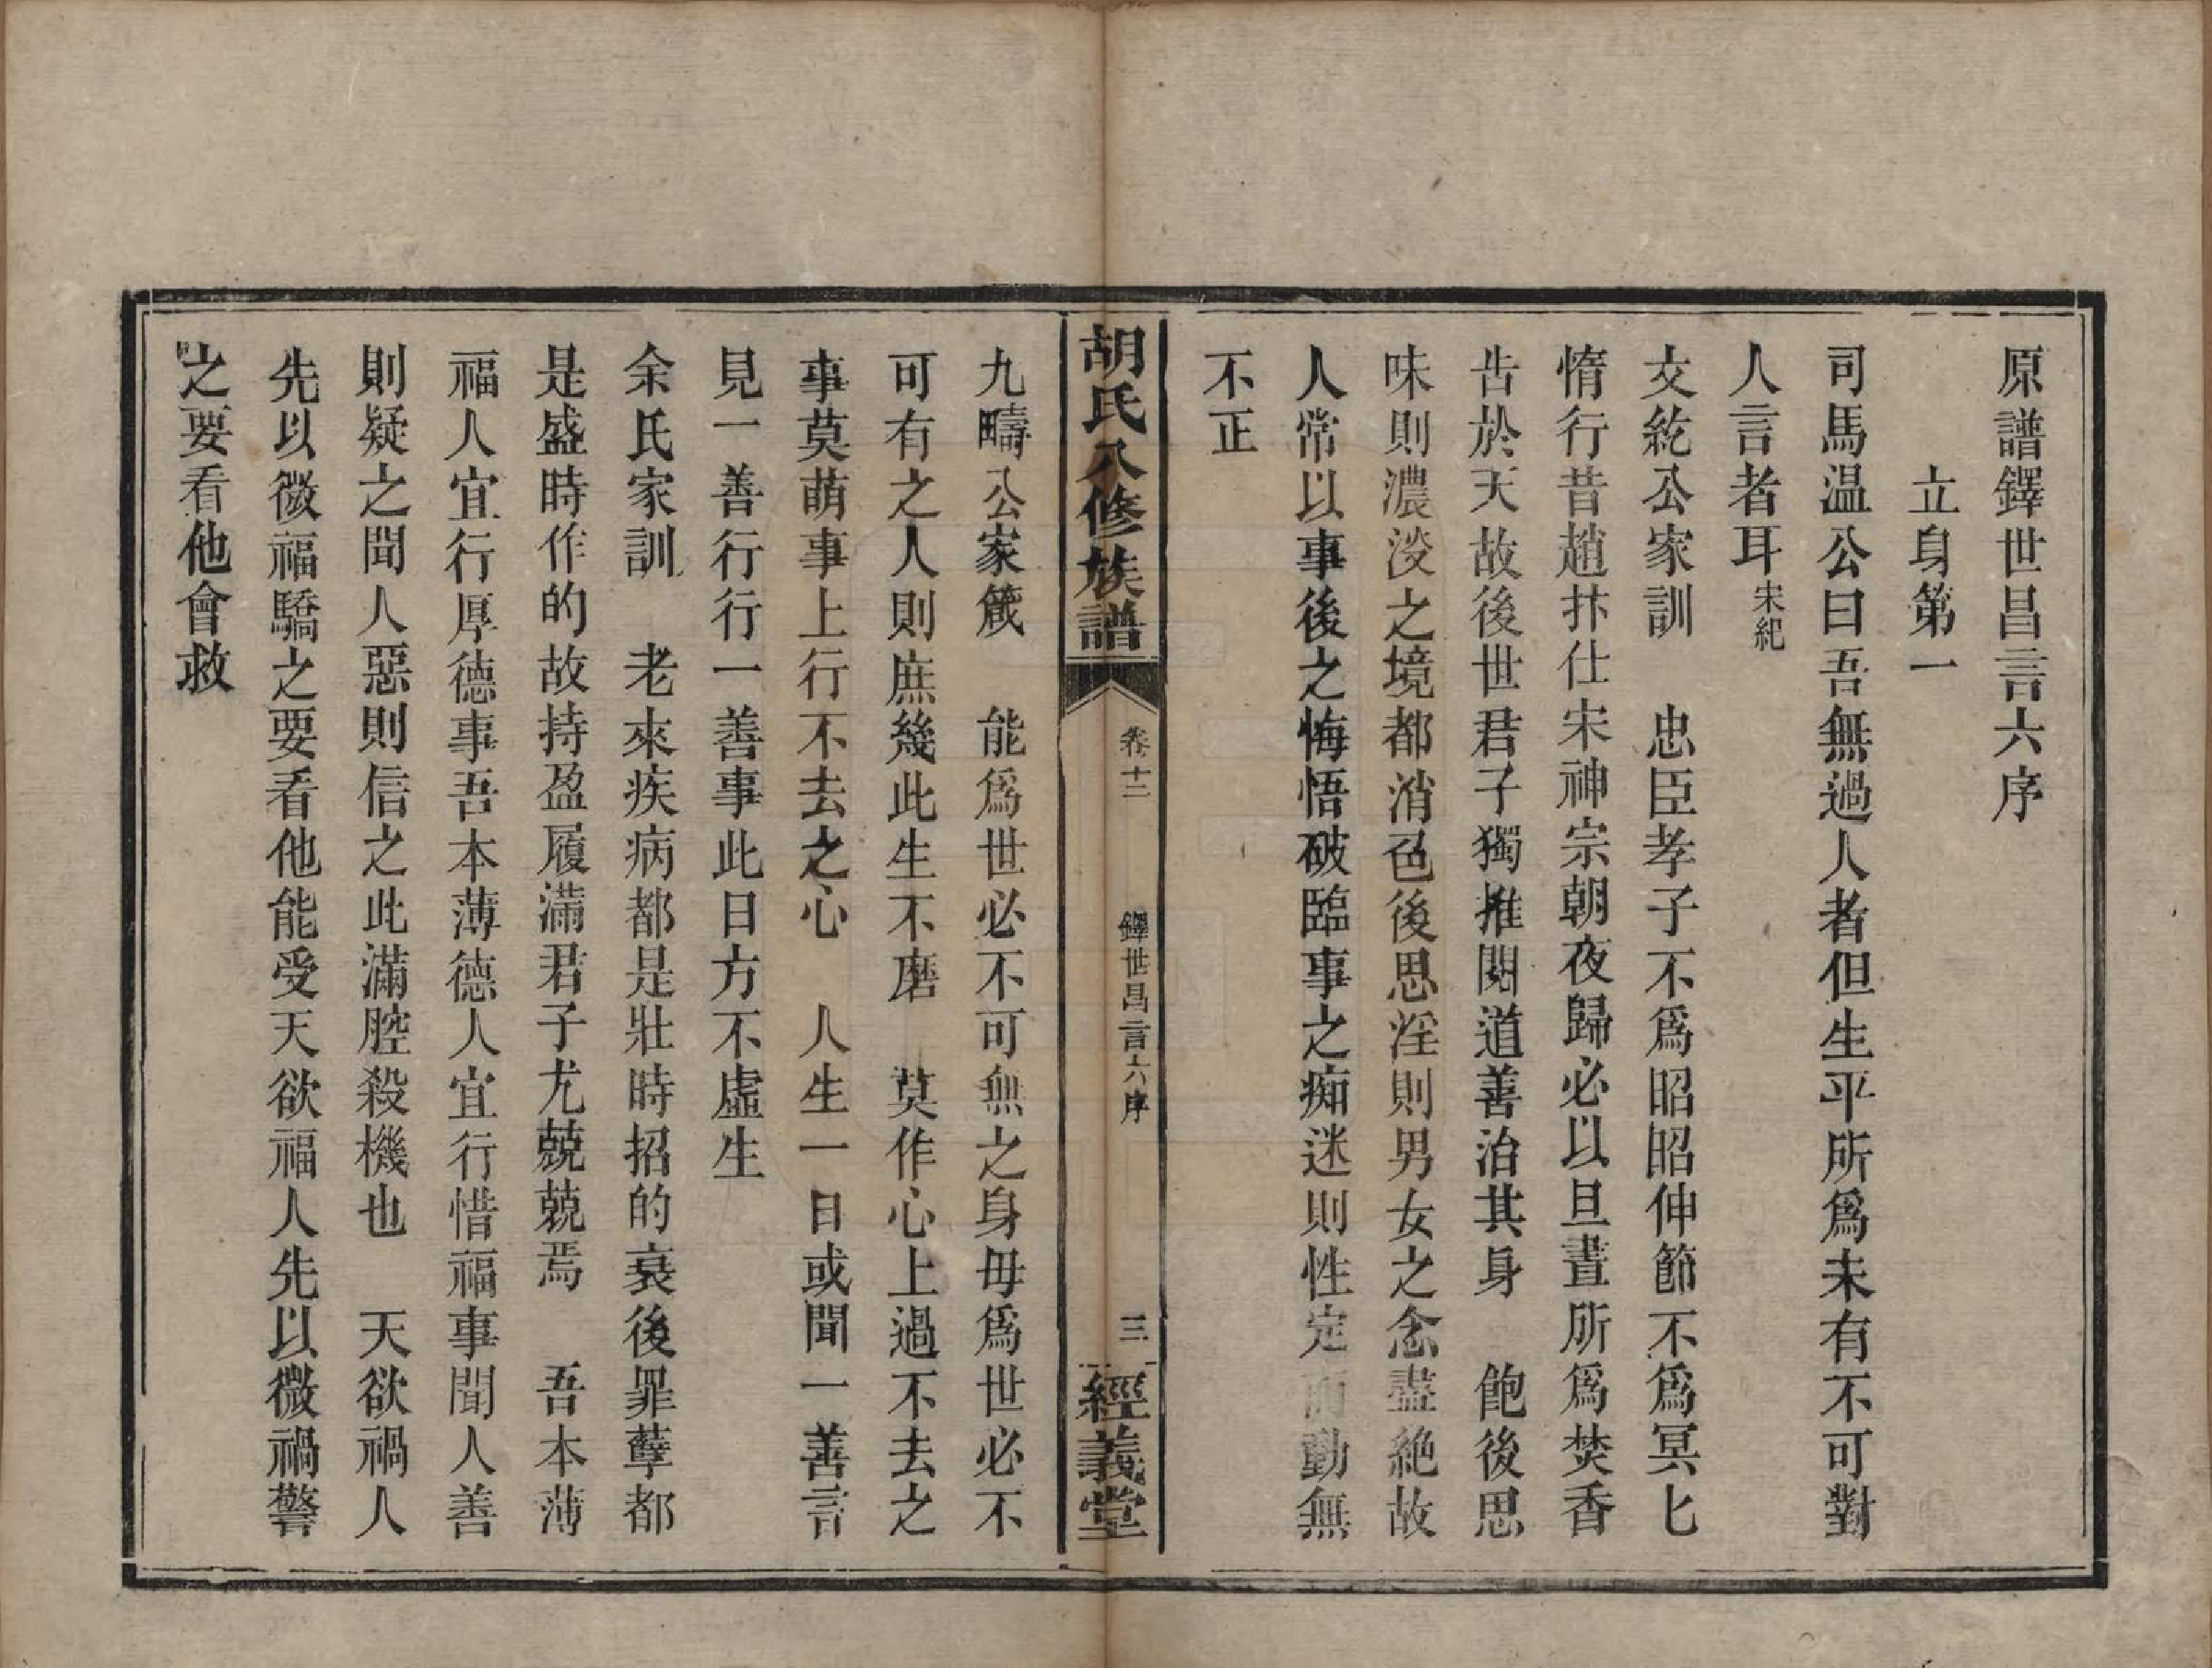 原譜鐸世昌言六序
立身第一
司馬温公曰吾無過人者但生平所爲未有不可對
人言者耳宋紀
文紇公家訓　忠臣孝子不爲昭昭伸節不爲冥匕
惰行昔趙抃仕宋神宗朝夜歸必以旦晝所爲焚香
告於天故後世君子獨推閱道善治其身　飽後思
味則濃淡之境都消色後思淫則男女之念盡絶故
人常以事後之悔悟破臨事之痴迷則性定而動無
不正
胡氏八修族譜
卷十二
鐸世昌言六序
三
經義堂
九疇公家箴　能爲世必不可無之身毋爲世必不
可有之人則庶幾此生不磨　莫作心上過不去之
事莫萌事上行不去之心　人生一日或聞一善言
見一善行行一善事此日方不虛生
余氏家訓　老來疾病都是壯時招的衰後罪孽都
是盛時作的故持盈履滿君子尤兢兢焉　吾本薄
福人宜行厚德事吾本薄德人宜行惜福事聞人善
則疑之聞人惡則信之此滿腔殺機也　天欲禍人
先以微福驕之要看他能受天欲福人先以微禍警
之要看他會救